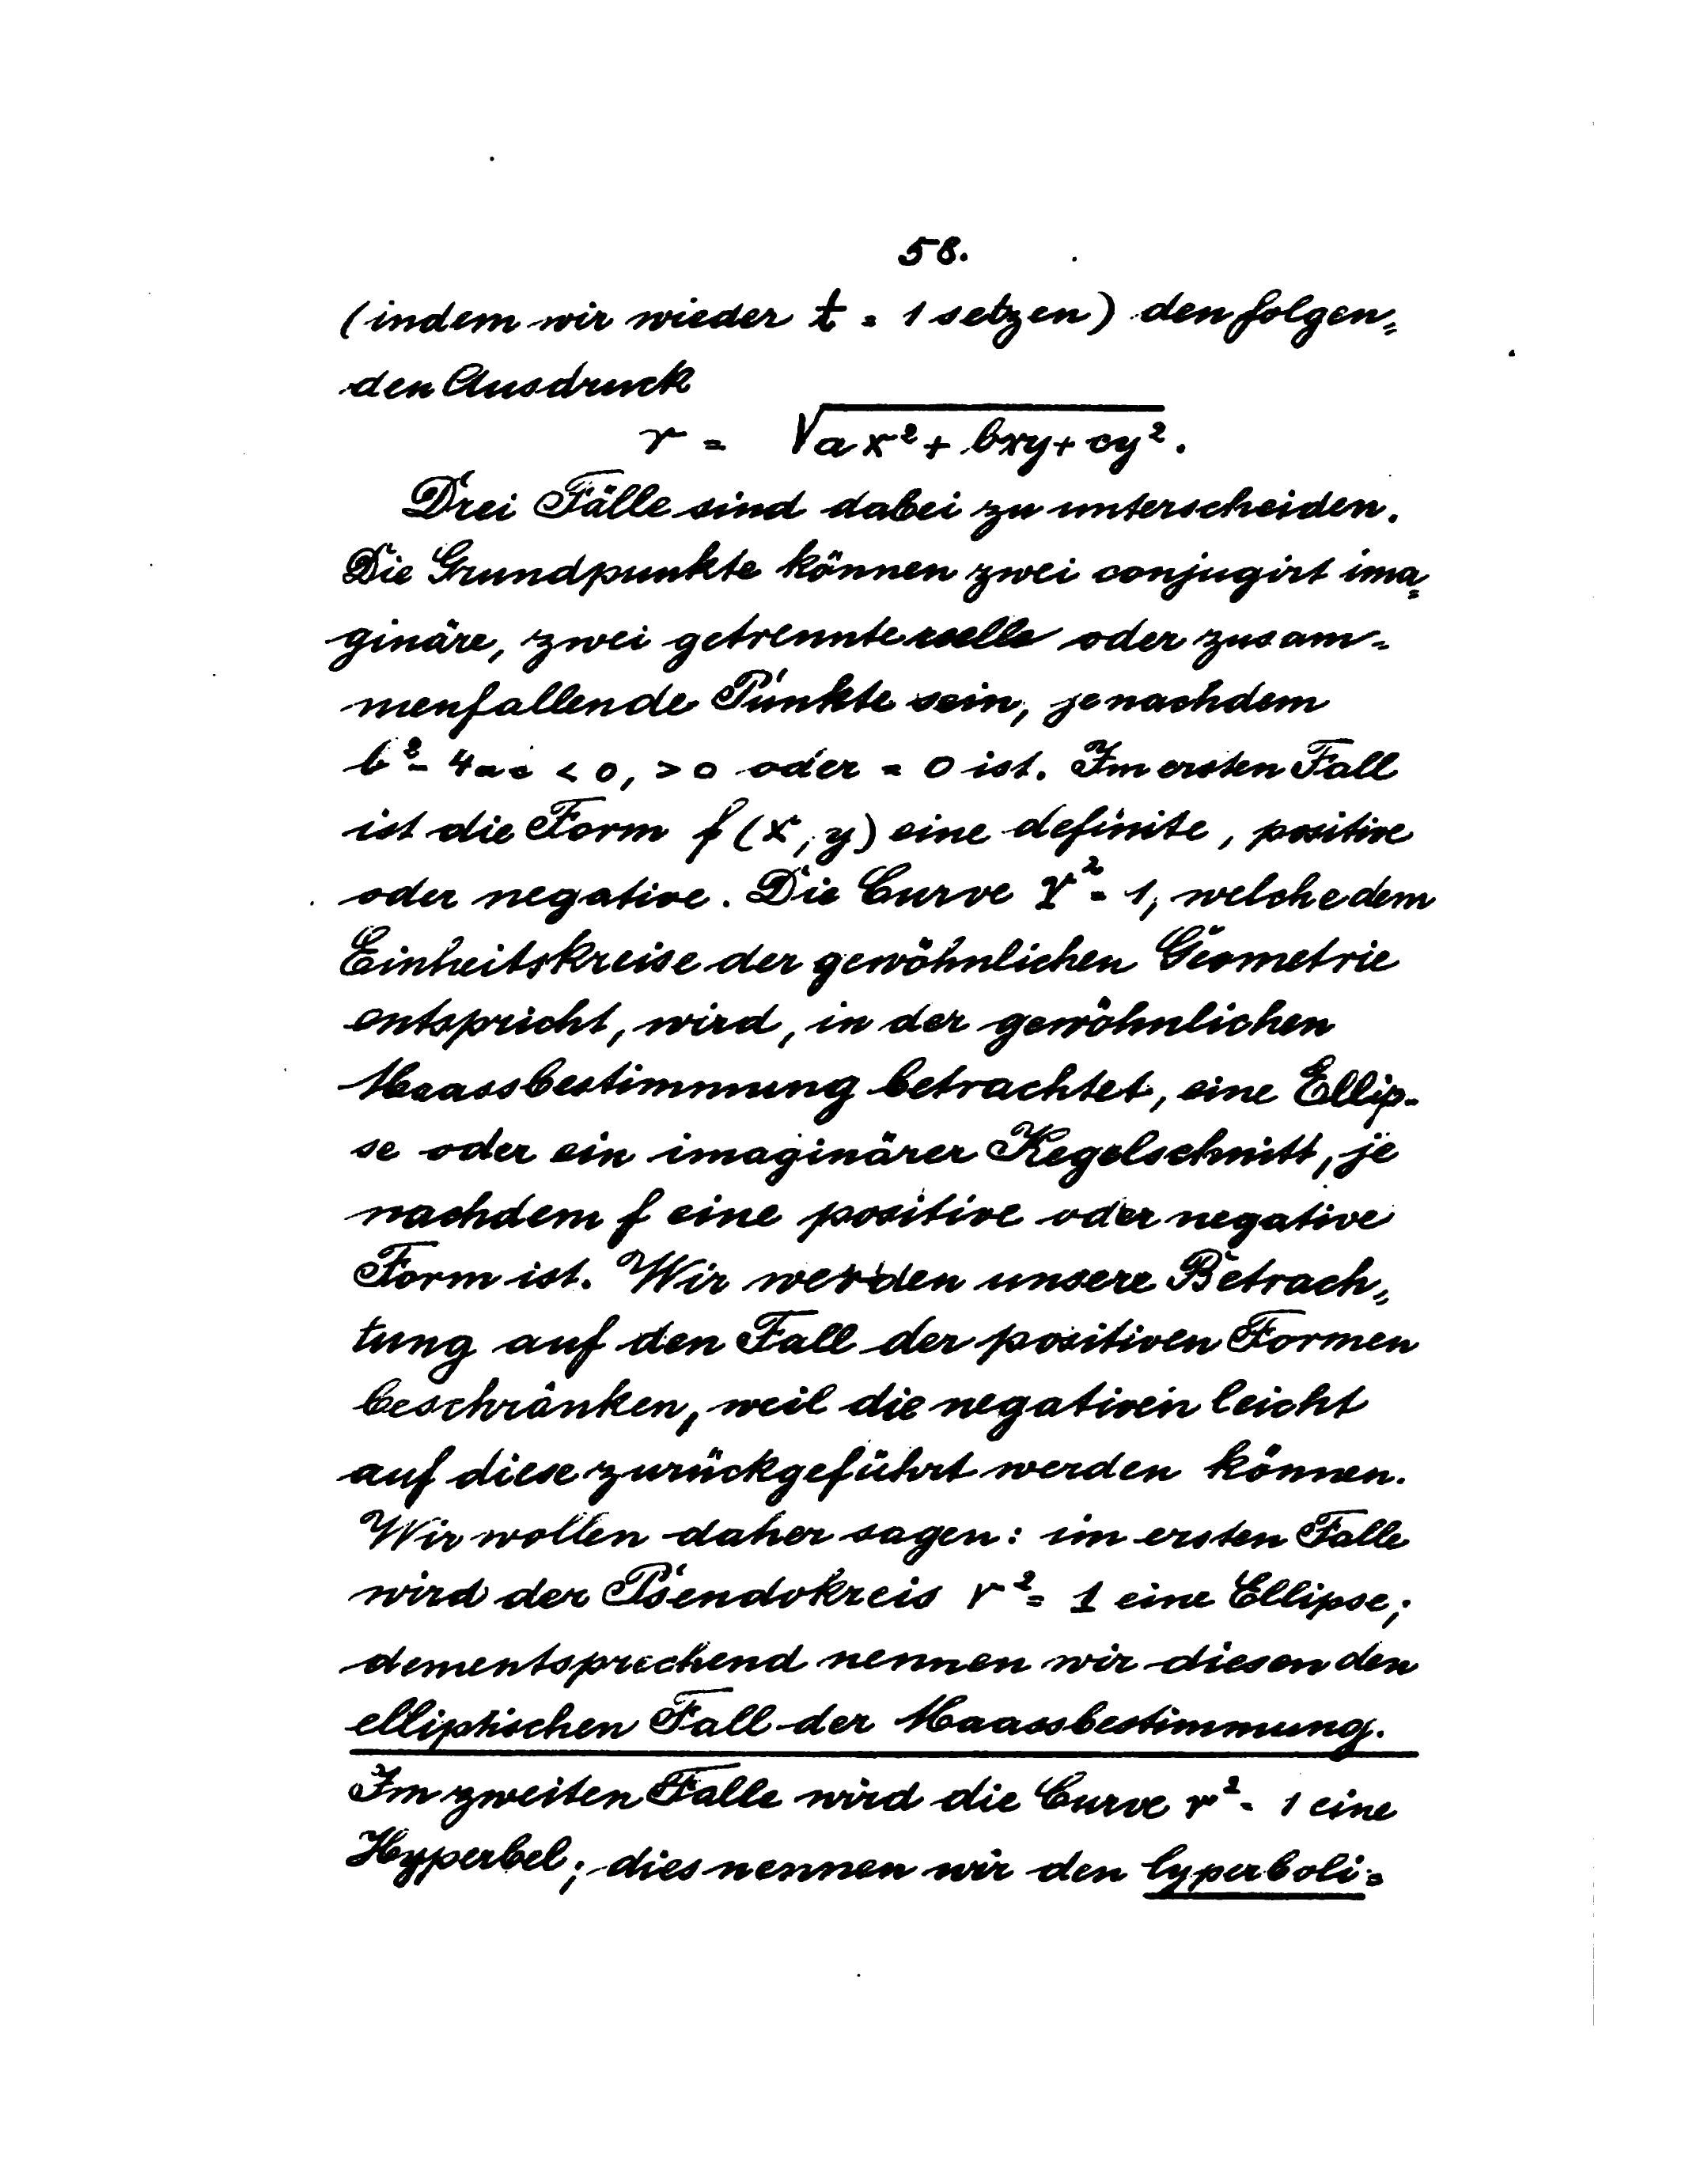 58.
(indem wir wieder t = 1 setzen) den folgen=
den Ausdruck
r = √ax²+ bxy + cy².
Drei Fälle sind dabei zu unterscheiden.
Die Grundpunkte können zwei conjugirt ima=
ginäre, zwei getrennte reelle oder zusam=
menfallende Punkte sein, je nachdem
b²- 4ac < 0, > 0 oder = 0 ist. Im ersten Fall
ist die Form f (x, y) eine definite, positive
oder negative. Die Curve r² = 1, welche dem
Einheitskreise der gewöhnlichen Geometrie
entspricht, wird, in der gewöhnlichen
Maassbestimmung betrachtet, eine Ellip-
se oder ein imaginärer Kegelschnitt, je
nachdem f eine positive oder negative
Form ist. Wir werden unsere Betrach=
tung auf den Fall der positiven Formen
beschränken, weil die negativen leicht
auf diese zurückgeführt werden können.
Wir wollen daher sagen: im ersten Falle
wird der Pseudokreis r² = 1 eine Ellipse;
dementsprechend nennen wir diesen den
elliptischen Fall der Maassbestimmung.
Im zweiten Falle wird die Curve r² = 1 eine
Hyperbel; dies nennen wir den hyperboli=